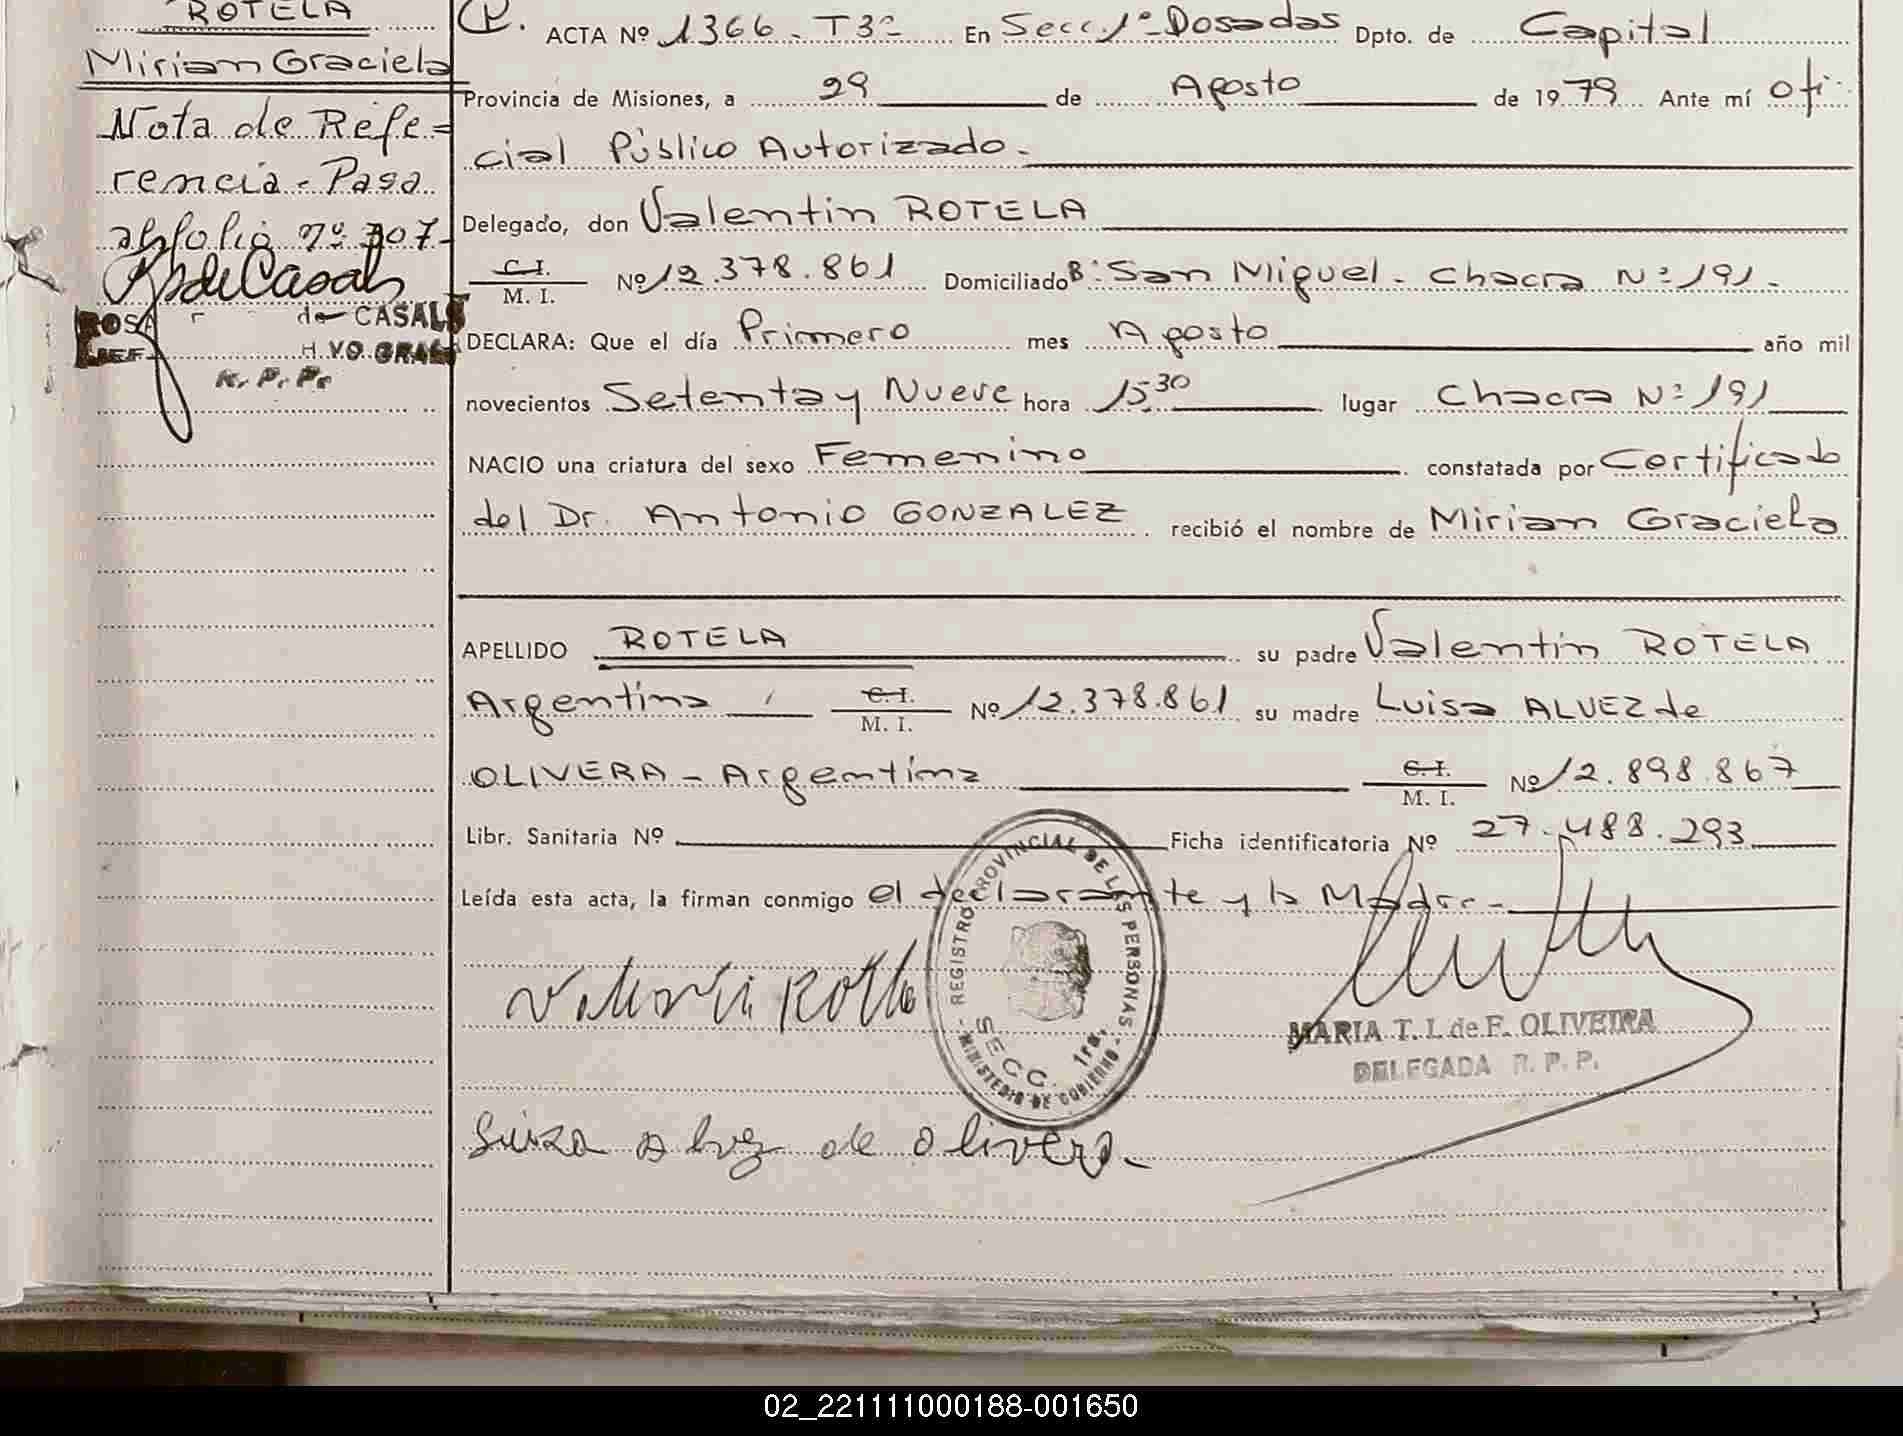 ROTELA
Mirian Graciela
Nota de Refe=
rencia - Pasa
al folio nº 707-
de CASALS
K. P. Ps
ACTA Nº 1366 - T3º En Secc. 1º - Posadas Dpto. de Capital
Provincia de Misiones, a 29 de Agosto de 1979 Ante mí Ofi-
cial Público Autorizado.-
Delegado, don Valentin ROTELA
C. I.
M. I. Nº 12.378.861 Domiciliado Bº San Miguel - Chacra Nº 191 -
DECLARA: Que el día Primero mes Agosto año mil
novecientos Setenta y Nueve hora 15,30 lugar Chacra Nº 191
NACIO una criatura del sexo Femenino constatada por Certificado
del Dr. Antonio GONZALEZ recibió el nombre de Mirian Graciela
APELLIDO ROTELA su padre Valentin ROTELA
Argentina C. I.
M. I. Nº 12.378.861 su madre Luisa ALVEZ de
OLIVERA - Argentina C. I.
M. I. Nº 12.898.867
Libr. Sanitaria Nº Ficha identificatoria Nº 27.488.293
Leída esta acta, la firman conmigo el declarante y la Madre -
REGISTRO PROVINCIAL DE LAS PERSONAS
SECC. 1ra.
MINISTERIO DE GOBIERNO
MARIA T. I. de F. OLIVEIRA
DELEGADA R. P. P.
Luiza Alvez de Olivera.-
02_221111000188-001650